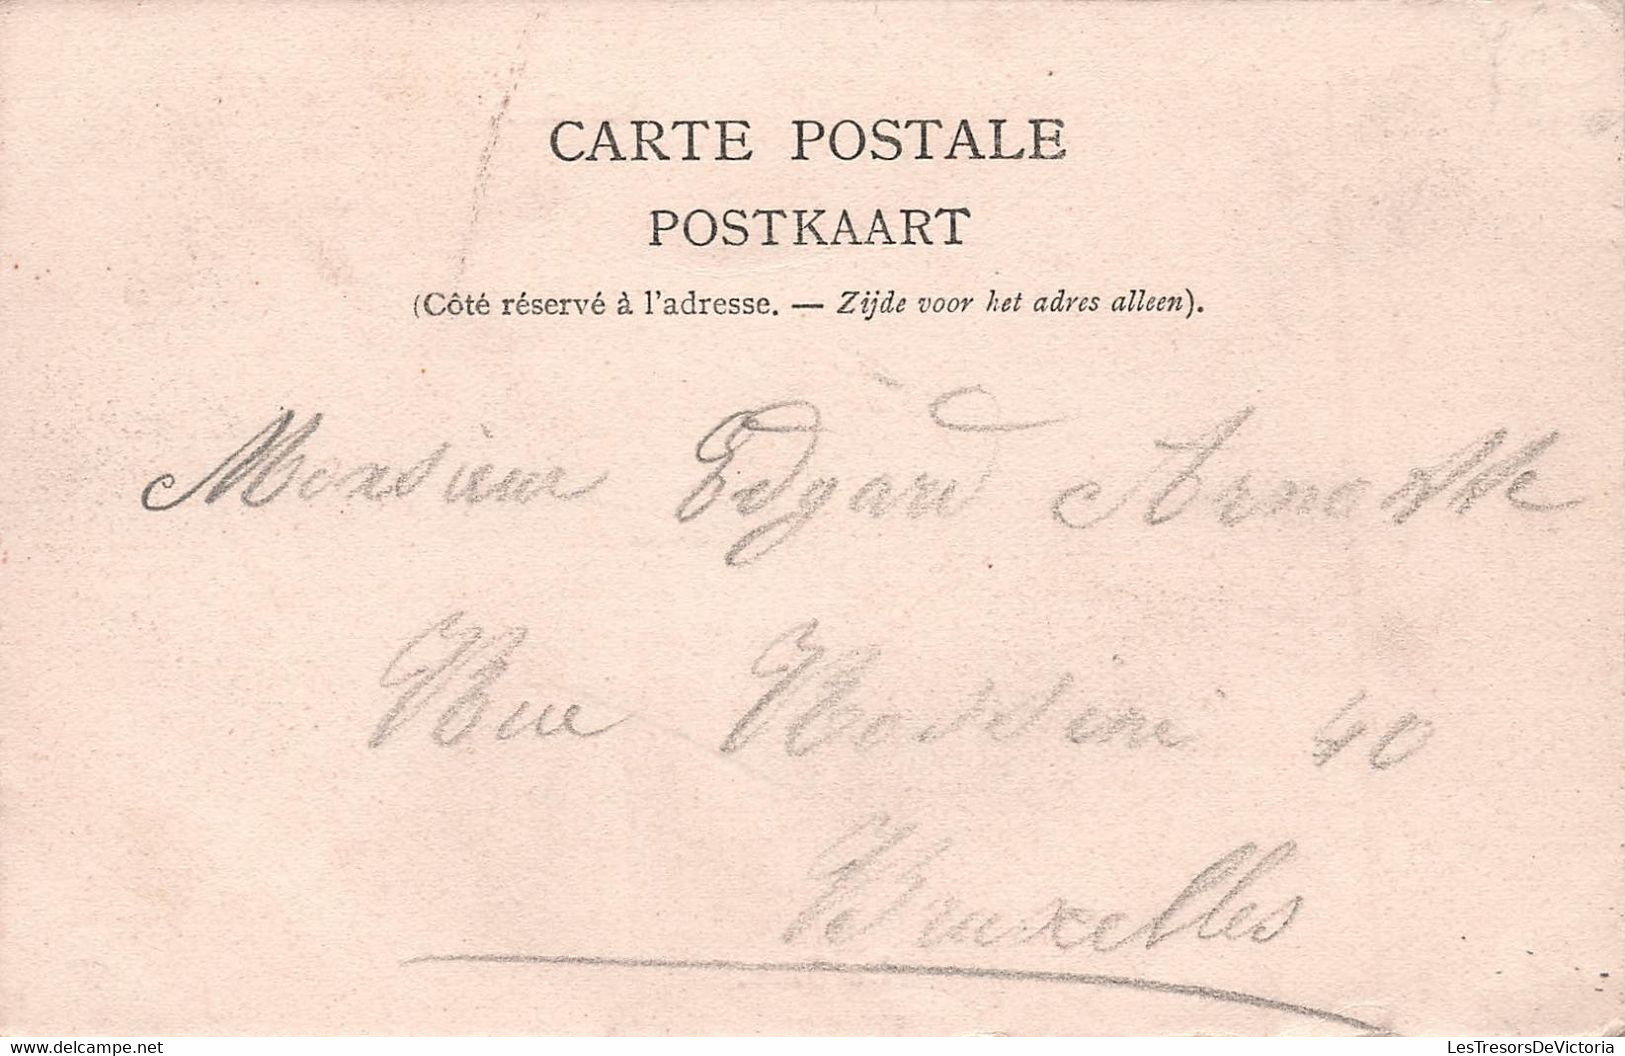 CARTE POSTALE
POSTKAART
(Côté réservé à l'adresse. — Zijde voor het adres alleen).
Monsieur Edgard
Rue Rossini 40
Bruxelles
delcampe.net
LesTresorsDeVictoria